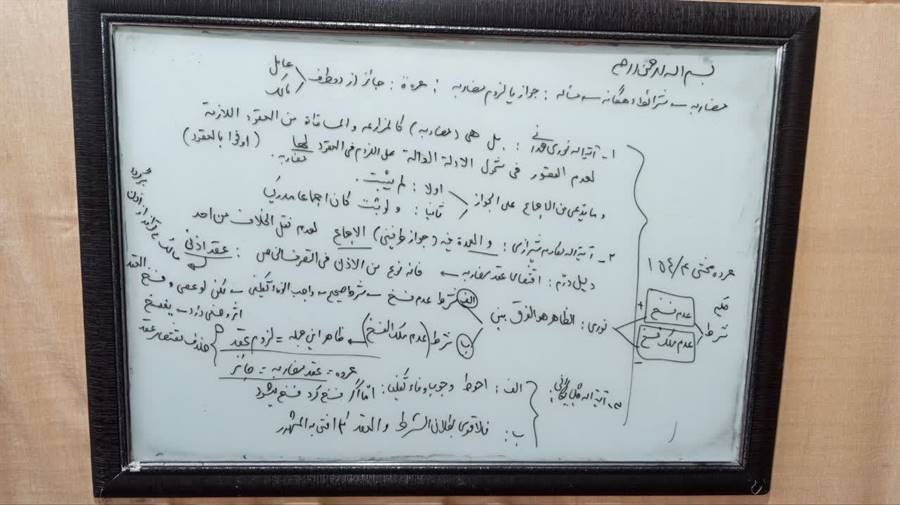 بسم الله الرحمن الرحیم
مضاربه ← شرائط دهگانه ← مساله : جواز یا لزوم مضاربه : عروة : جائز از دو طرف
عامل
مالک
۱ـ آیة الله نوری همدانی : بل هی (مضاربه) کالمزارعه والمساقاة من العقود اللازمة
لعدم القصور فی شمول الادلة الدالة علی اللزوم فی العقود لها (اوفوا بالعقود)
مضاربه
و ما یدعی من الاجماع علی الجواز
اولا : لم یثبت .
ثانیا : ولو ثبت کان اجماعا مدرکیا
۲ـ آیة الله مکارم شیرازی : والعمدة فیه (جواز طرفینی) الاجماع لعدم نقل الخلاف من احد
دلیل دوم : اقتضای عقد مضاربه ← فانه نوع من الاذن فی التصرف الخاص : عقد اذنی
عروه محشی ۴/ ۱۵۴
قلیم
شرط
عدم فسخ
عدم ملک فسخ
نوری : الظاهر هو الفرق بین
الف شرط عدم فسخ ← شرط صحیح ← واجب الوفاء تکلیفی ← لکن لو عصی و فسخ العقد
اثر وضعی دارد ← ینفسخ
ب شرط (عدم ملک الفسخ) ← ظاهر این جمله = لزوم عقد
عروه = عقد مضاربه = جائز
خلاف مقتضای عقد
۳ـ آیة الله گلپایگانی
الف : احوط وجوب وفاء تکلیفی : اما اگر فسخ کرد فسخ میشود
ب : فالاقوی بطلان الشرط و العقد کما افتی به المشهور